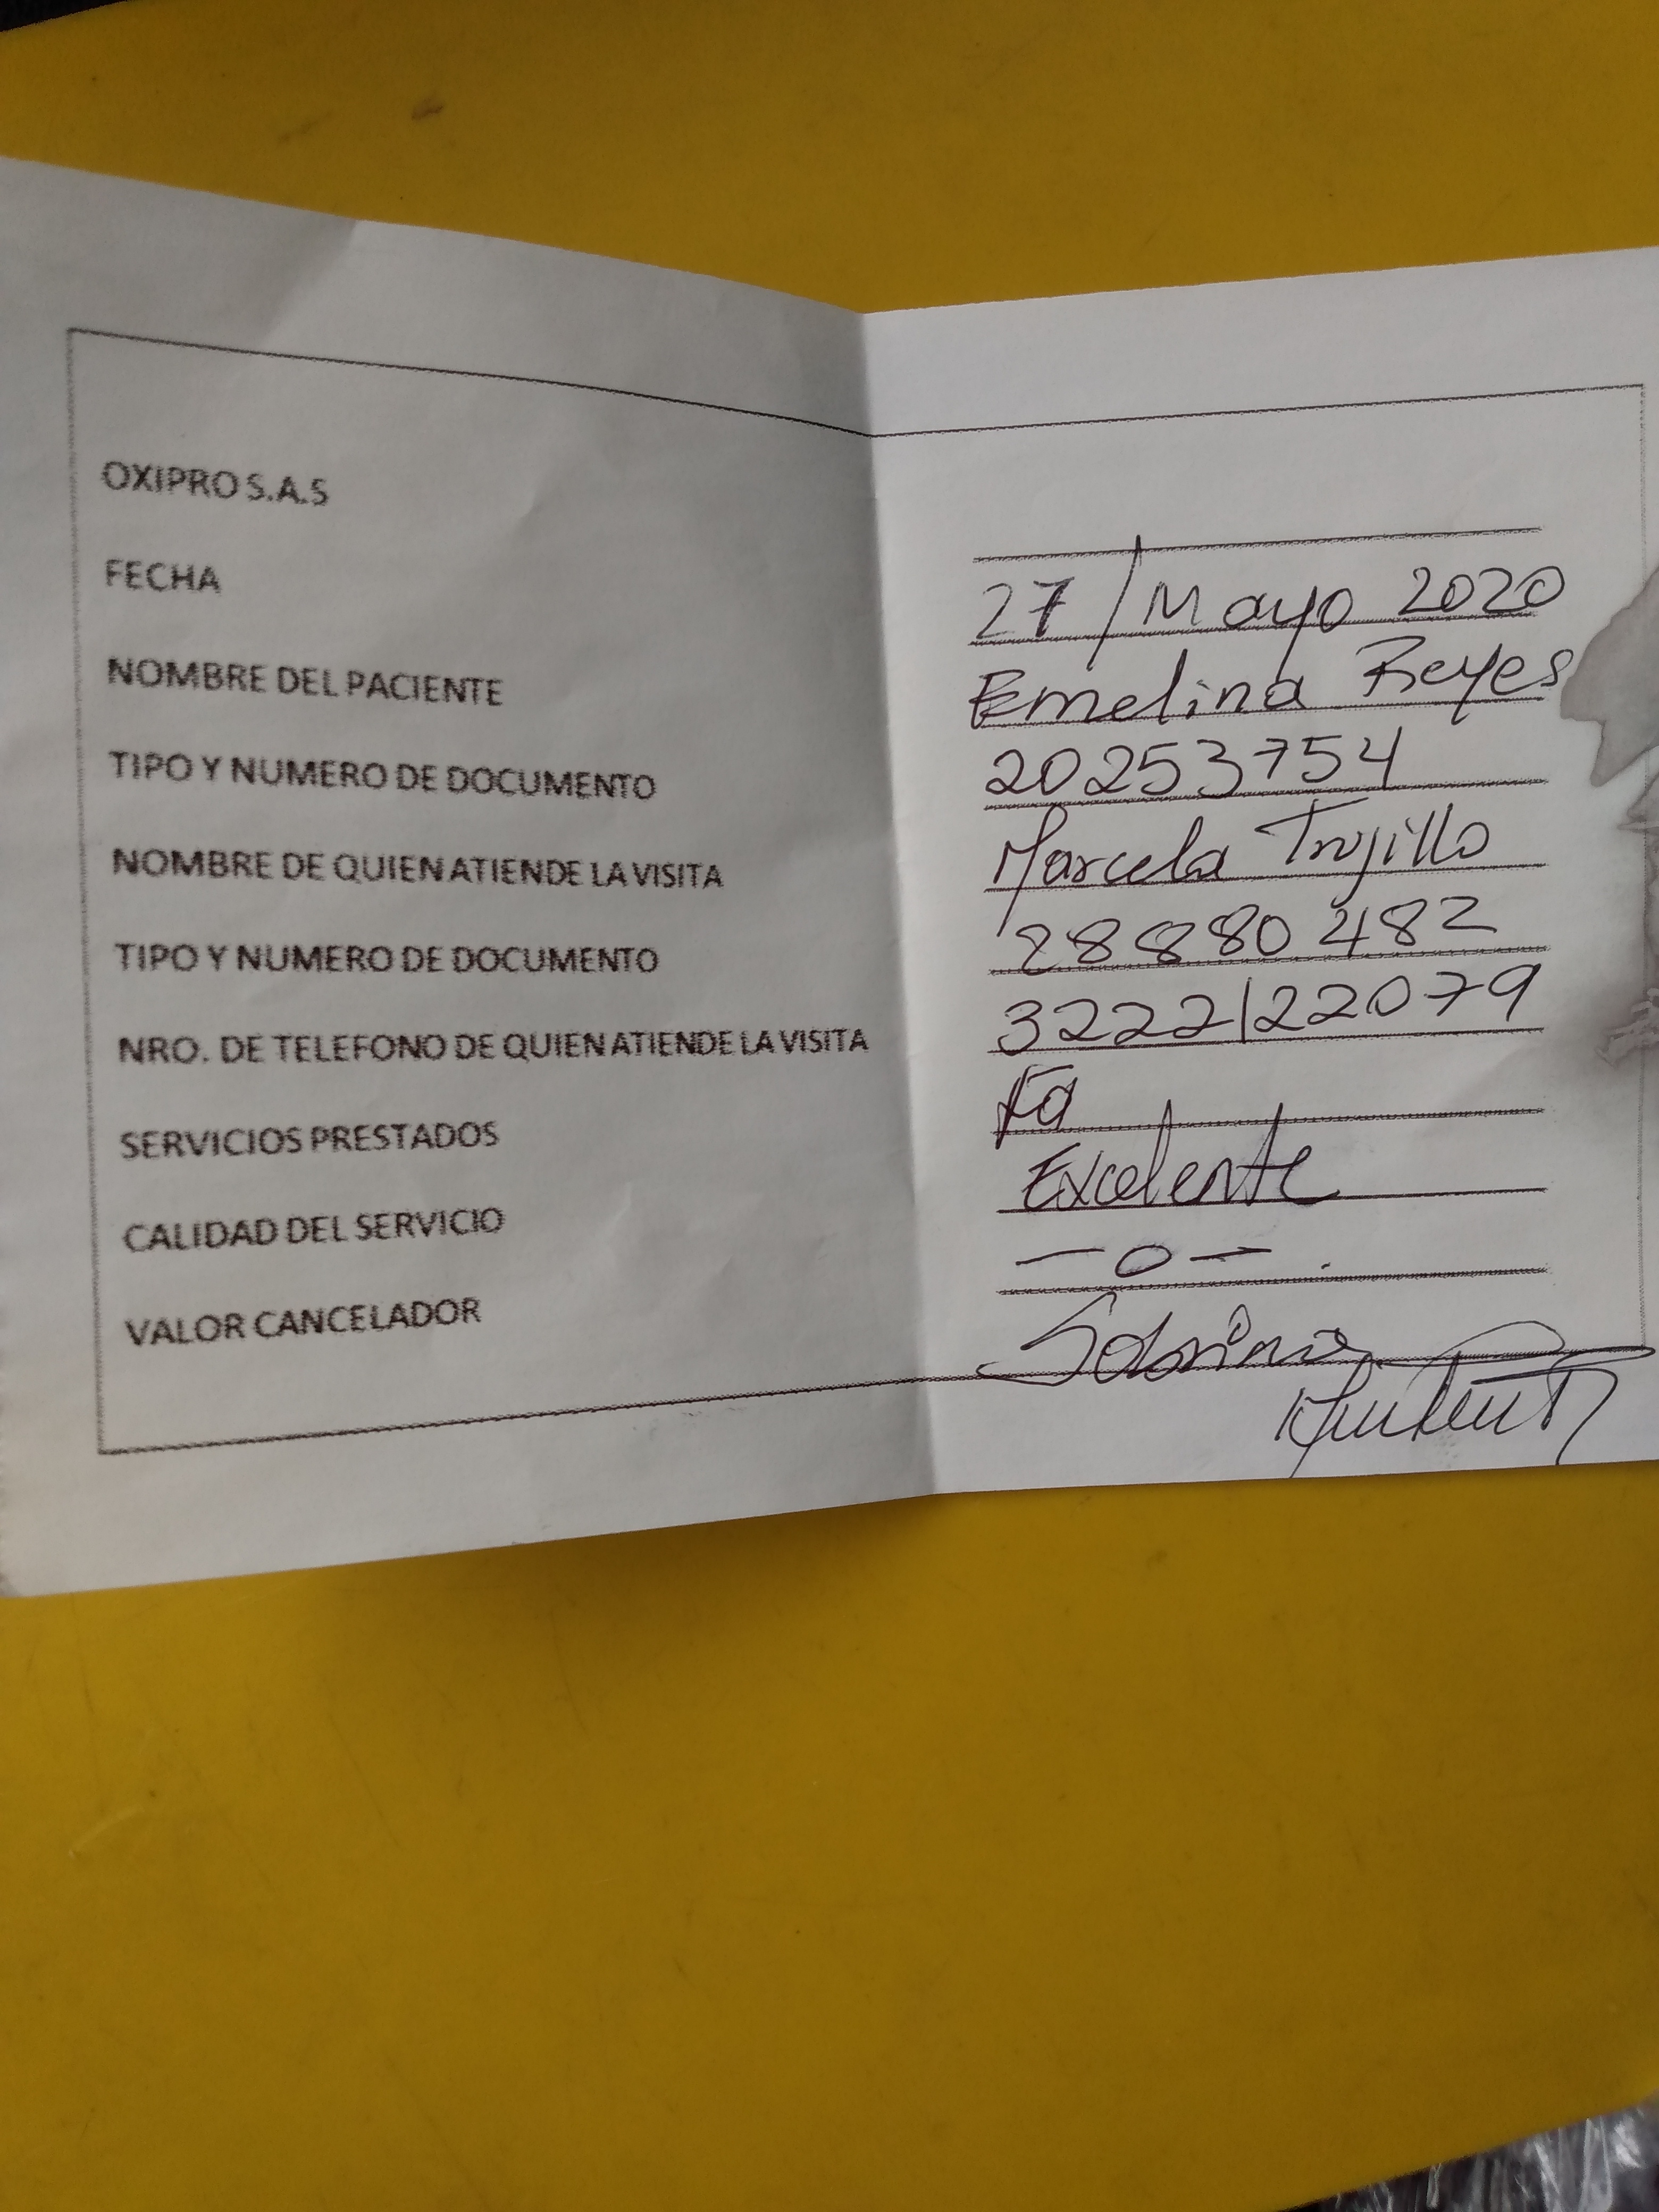 OXIPRO S.A.S
FECHA 27/Mayo 2020
NOMBRE DEL PACIENTE Emelina Reyes
TIPO Y NUMERO DE DOCUMENTO 20253754
NOMBRE DE QUIEN ATIENDE LA VISITA Marcela Trujillo
TIPO Y NUMERO DE DOCUMENTO 28880482
NRO. DE TELEFONO DE QUIEN ATIENDE LA VISITA 3222122079
SERVICIOS PRESTADOS
CALIDAD DEL SERVICIO Excelente
VALOR CANCELADOR —0—.